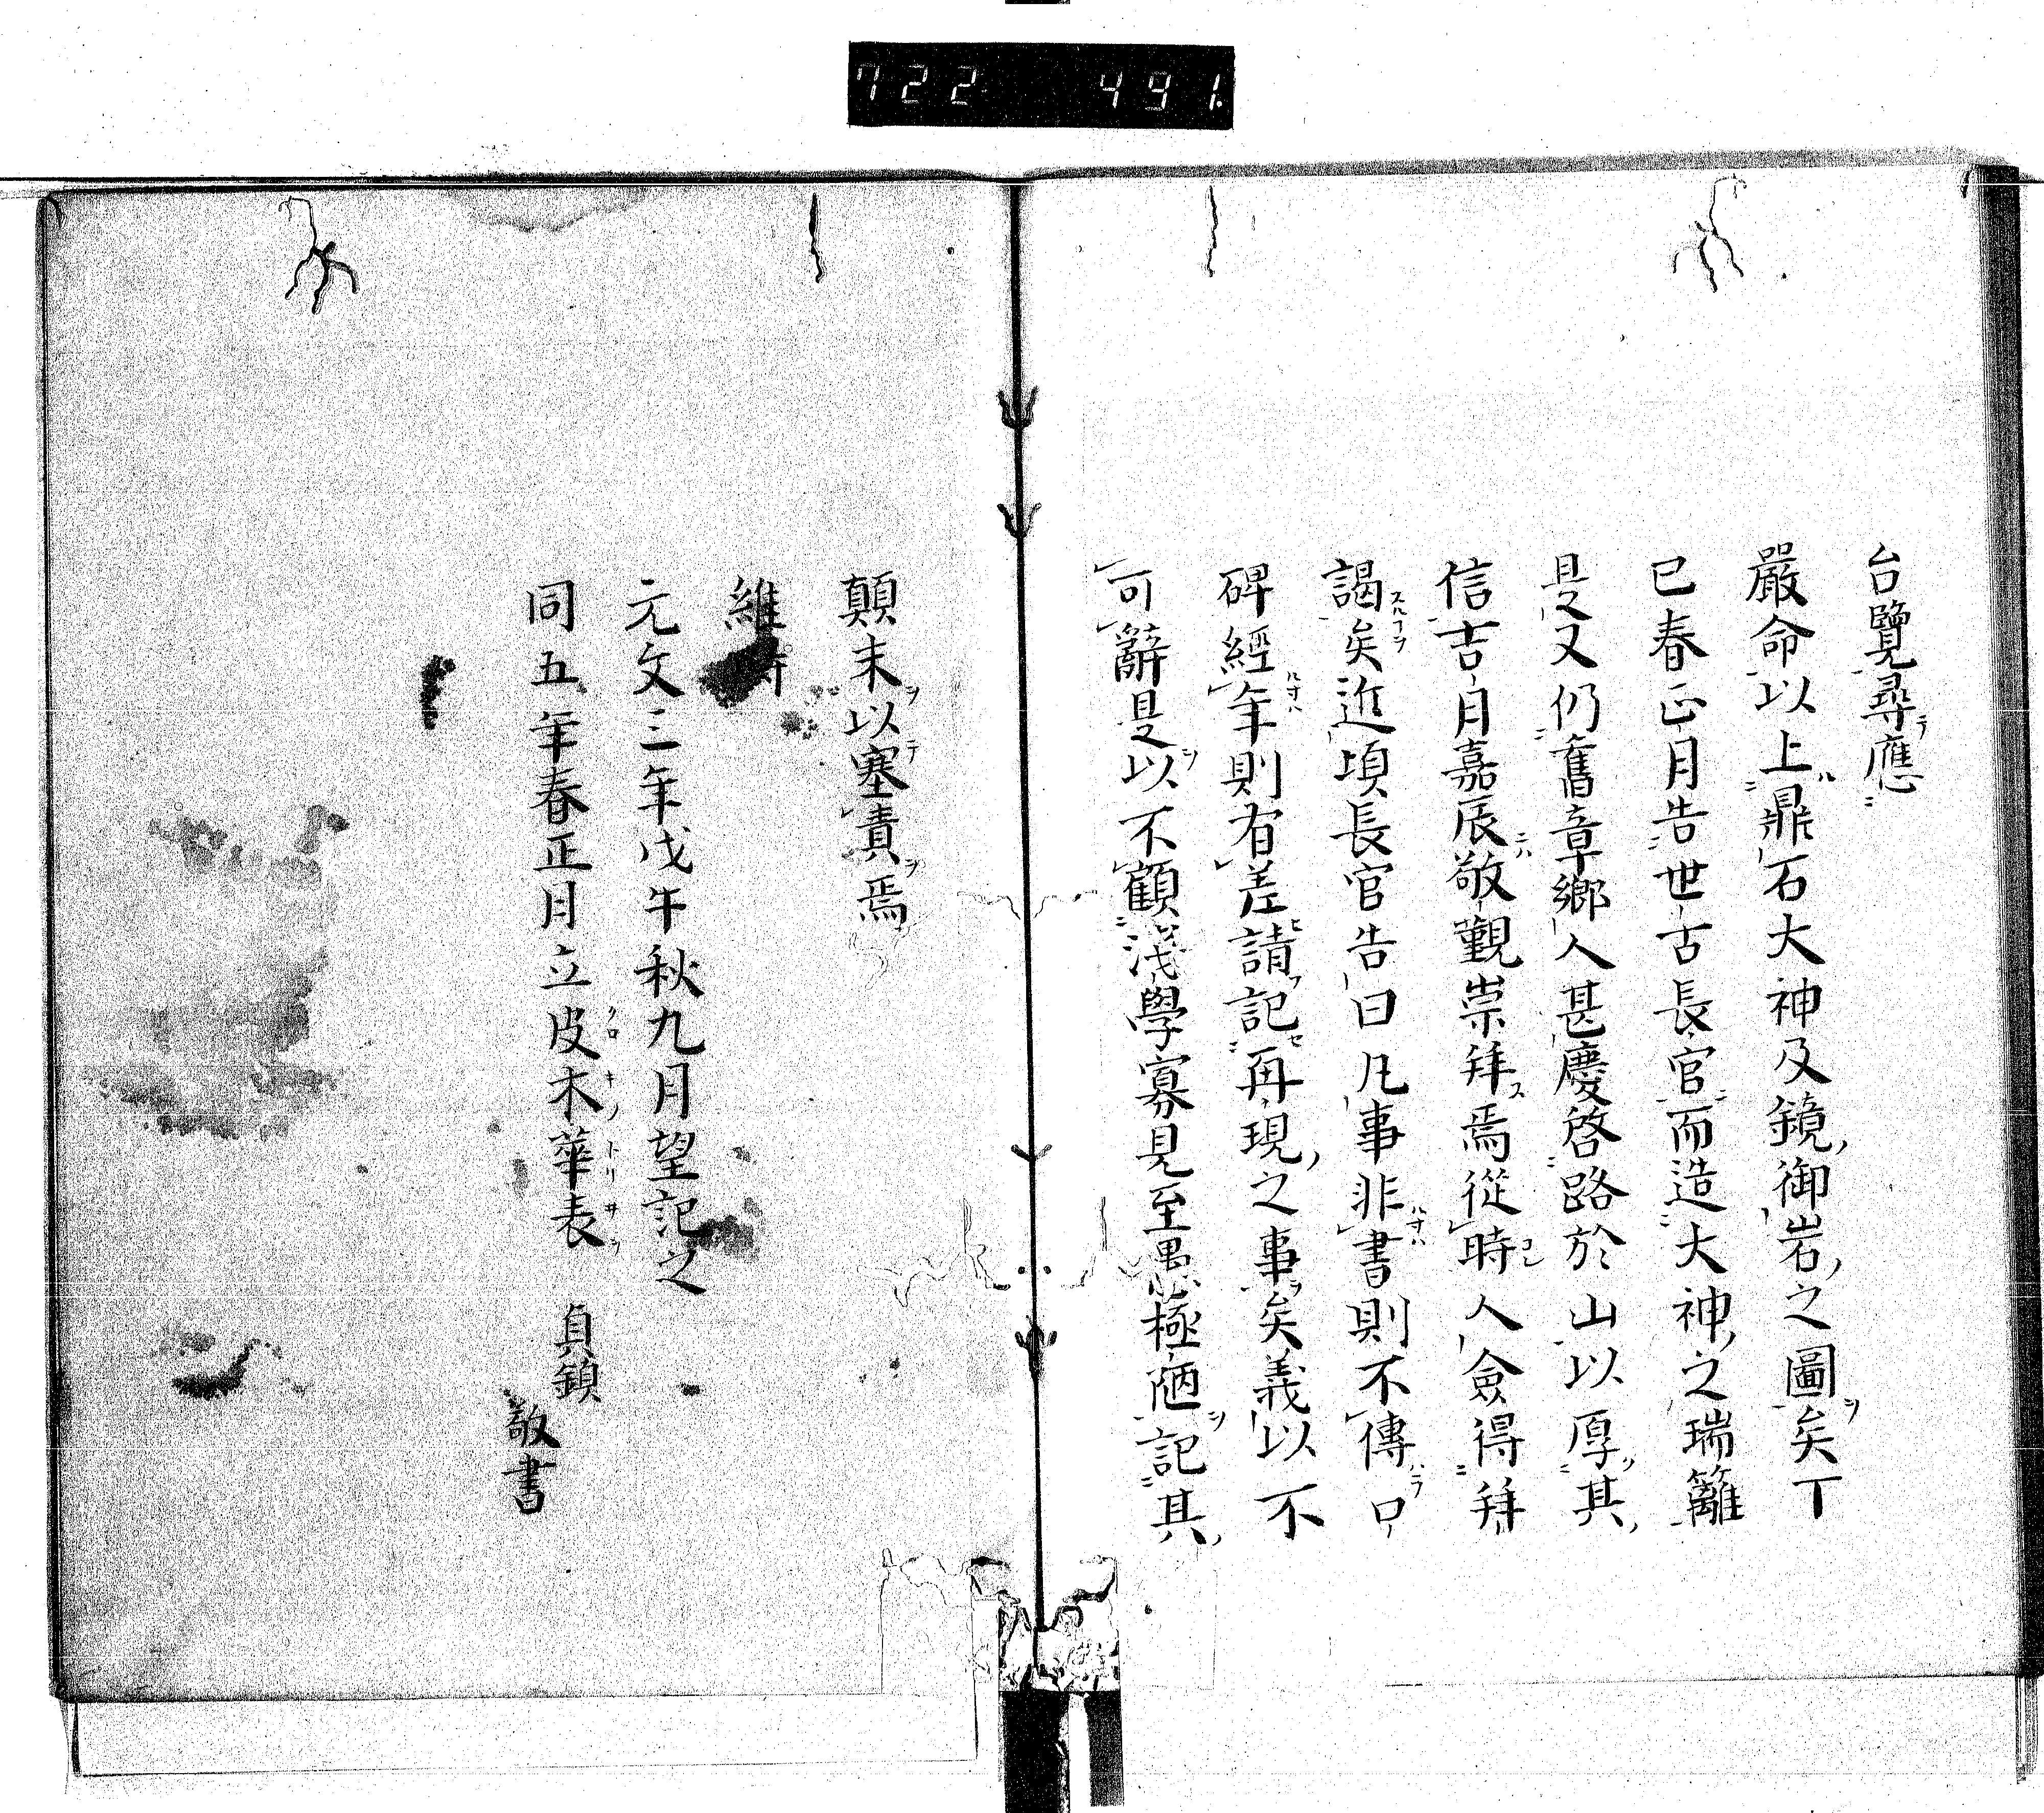 722 491.
台覽尋應
嚴命以上鼎石大神及鏡御岩之圖矣丁
巳春正月告世古長官而造大神之瑞籬
是又仍舊章鄉人甚慶啓路於山以厚其
信吉月嘉辰敬覲崇拜焉從時人僉得拜
謁矣近頃長官告曰凡事非書則不傳口
碑經年則有差請記再現之事矣義以不
可辭是以不顧淺學寡見至愚極陋記其
顛末以塞責焉
維時
元文三年戊午秋九月望記之
同五年春正月立皮木華表
クロキノトリヰヲ
貞鎮
敬書